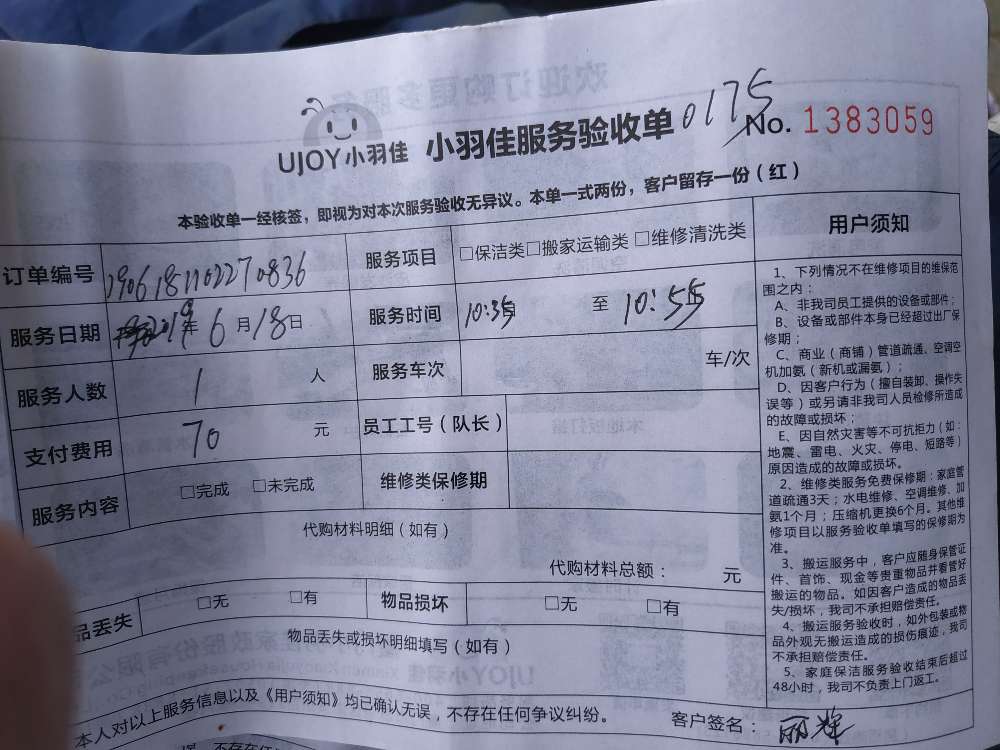 UJOY小羽佳 小羽佳服务验收单 0175 No. 1383059
本验收单一经核签，即视为对本次服务验收无异议。本单一式两份，客户留存一份（红）
订单编号 1906181102270836 服务项目 □保洁类□搬家运输类 □维修清洗类
服务日期 2019年 6 月 18 日 服务时间 10:35 至 10:55
服务人数 1 人 服务车次 车/次
支付费用 70 元 员工工号（队长）
服务内容 □完成 □未完成 维修类保修期
代购材料明细（如有）
代购材料总额： 元
品丢失 □无 □有 物品损坏 □无 □有
物品丢失或损坏明细填写（如有）
本人对以上服务信息以及《用户须知》均已确认无误，不存在任何争议纠纷。
客户签名：
用户须知
1、下列情况不在维修项目的维保范
围之内：
A、非我司员工提供的设备或部件；
B、设备或部件本身已经超过出厂保
修期；
C、商业（商铺）管道疏通、空调空
机加氨（新机或漏氨）；
D、因客户行为（擅自装卸、操作失
误等）或另请非我司人员检修所造成
的故障或损坏；
E、因自然灾害等不可抗拒力（如：
地震、雷电、火灾、停电、短路等）
原因造成的故障或损坏。
2、维修类服务免费保修期：家庭管
道疏通3天；水电维修、空调维修、加
氨1个月；压缩机更换6个月。其他维
修项目以服务验收单填写的保修期为
准。
3、搬运服务中，客户应随身保管证
件、首饰、现金等贵重物品并看管好
搬运的物品。如因客户造成的物品丢
失/损坏，我司不承担赔偿责任。
4、搬运服务验收时，如外包装或物
品外观无搬运造成的损伤痕迹，我司
不承担赔偿责任。
5、家庭保洁服务验收结束后超过
48小时，我司不负责上门返工。